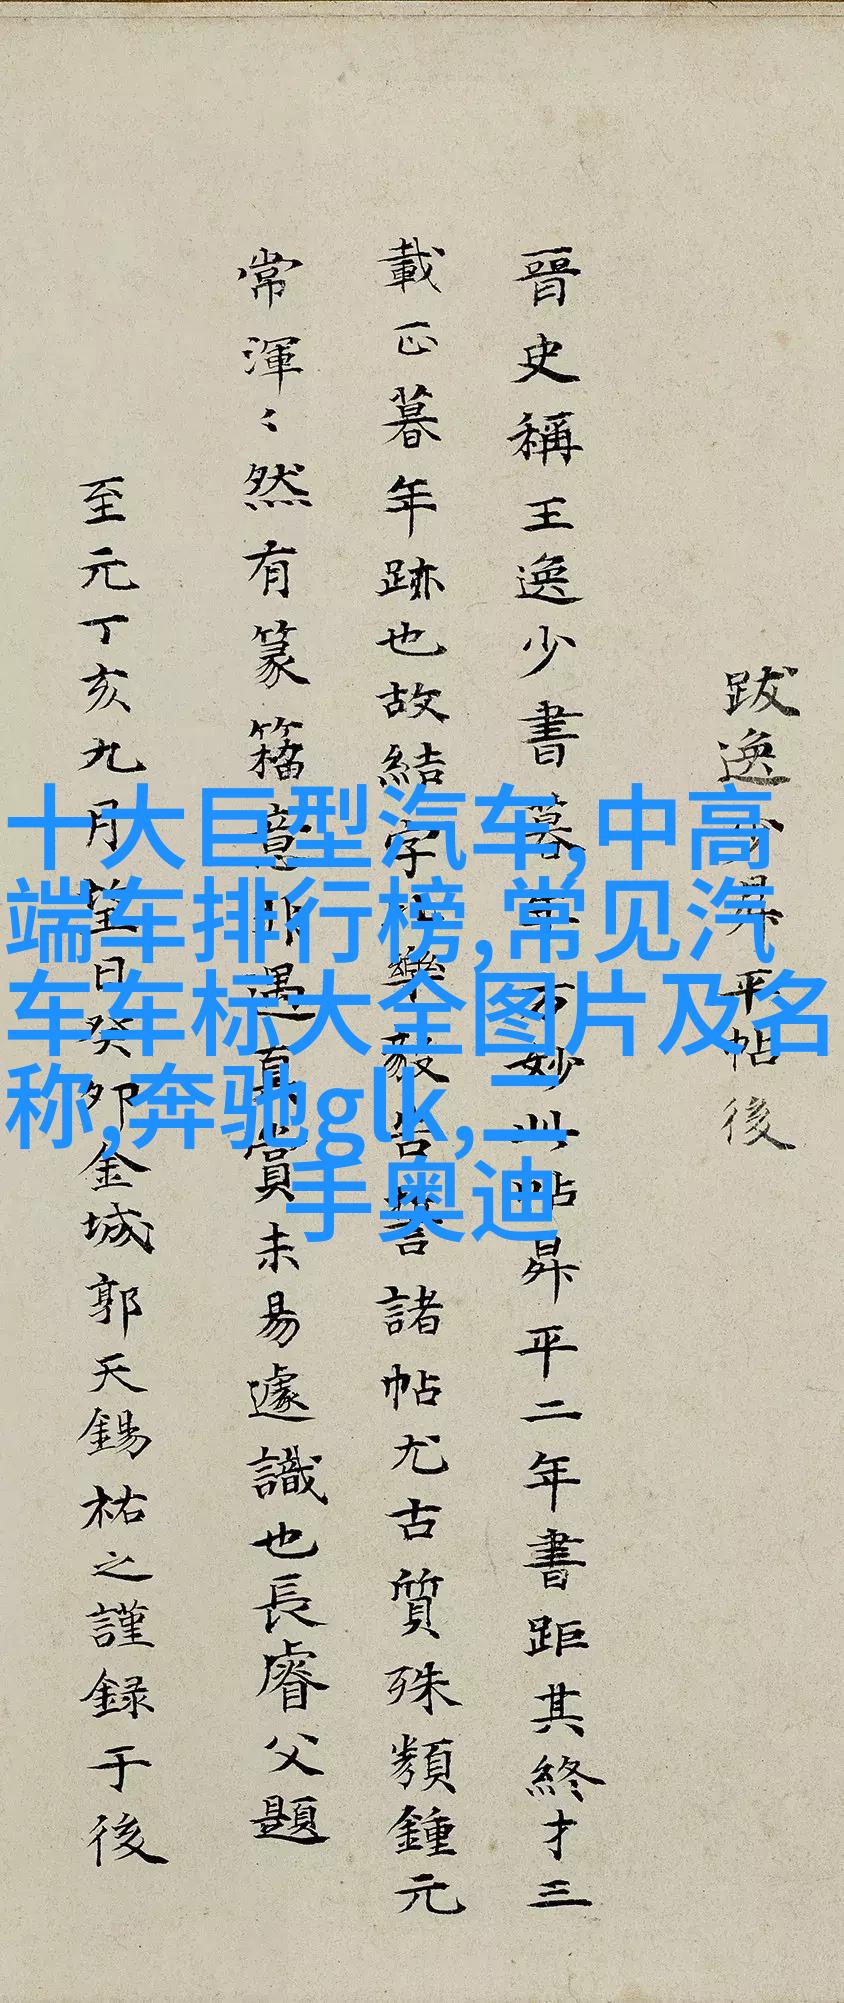 跋逸少昇平帖後
晉史稱王逸少書暮年方妙此帖昇平二年書距其終才三
載正暮年跡也故結字比樂毅告誓諸帖尤古質殊類鍾元
常渾〻然有篆籀意非遇真賞未易遽識也長睿父題
至元丁亥九月望日癸卯金城郭天錫祐之謹録于後
十大巨型汽车,中高
端车排行榜,常见汽
车车标大全图片及名
称,奔驰glk,二
手奥迪